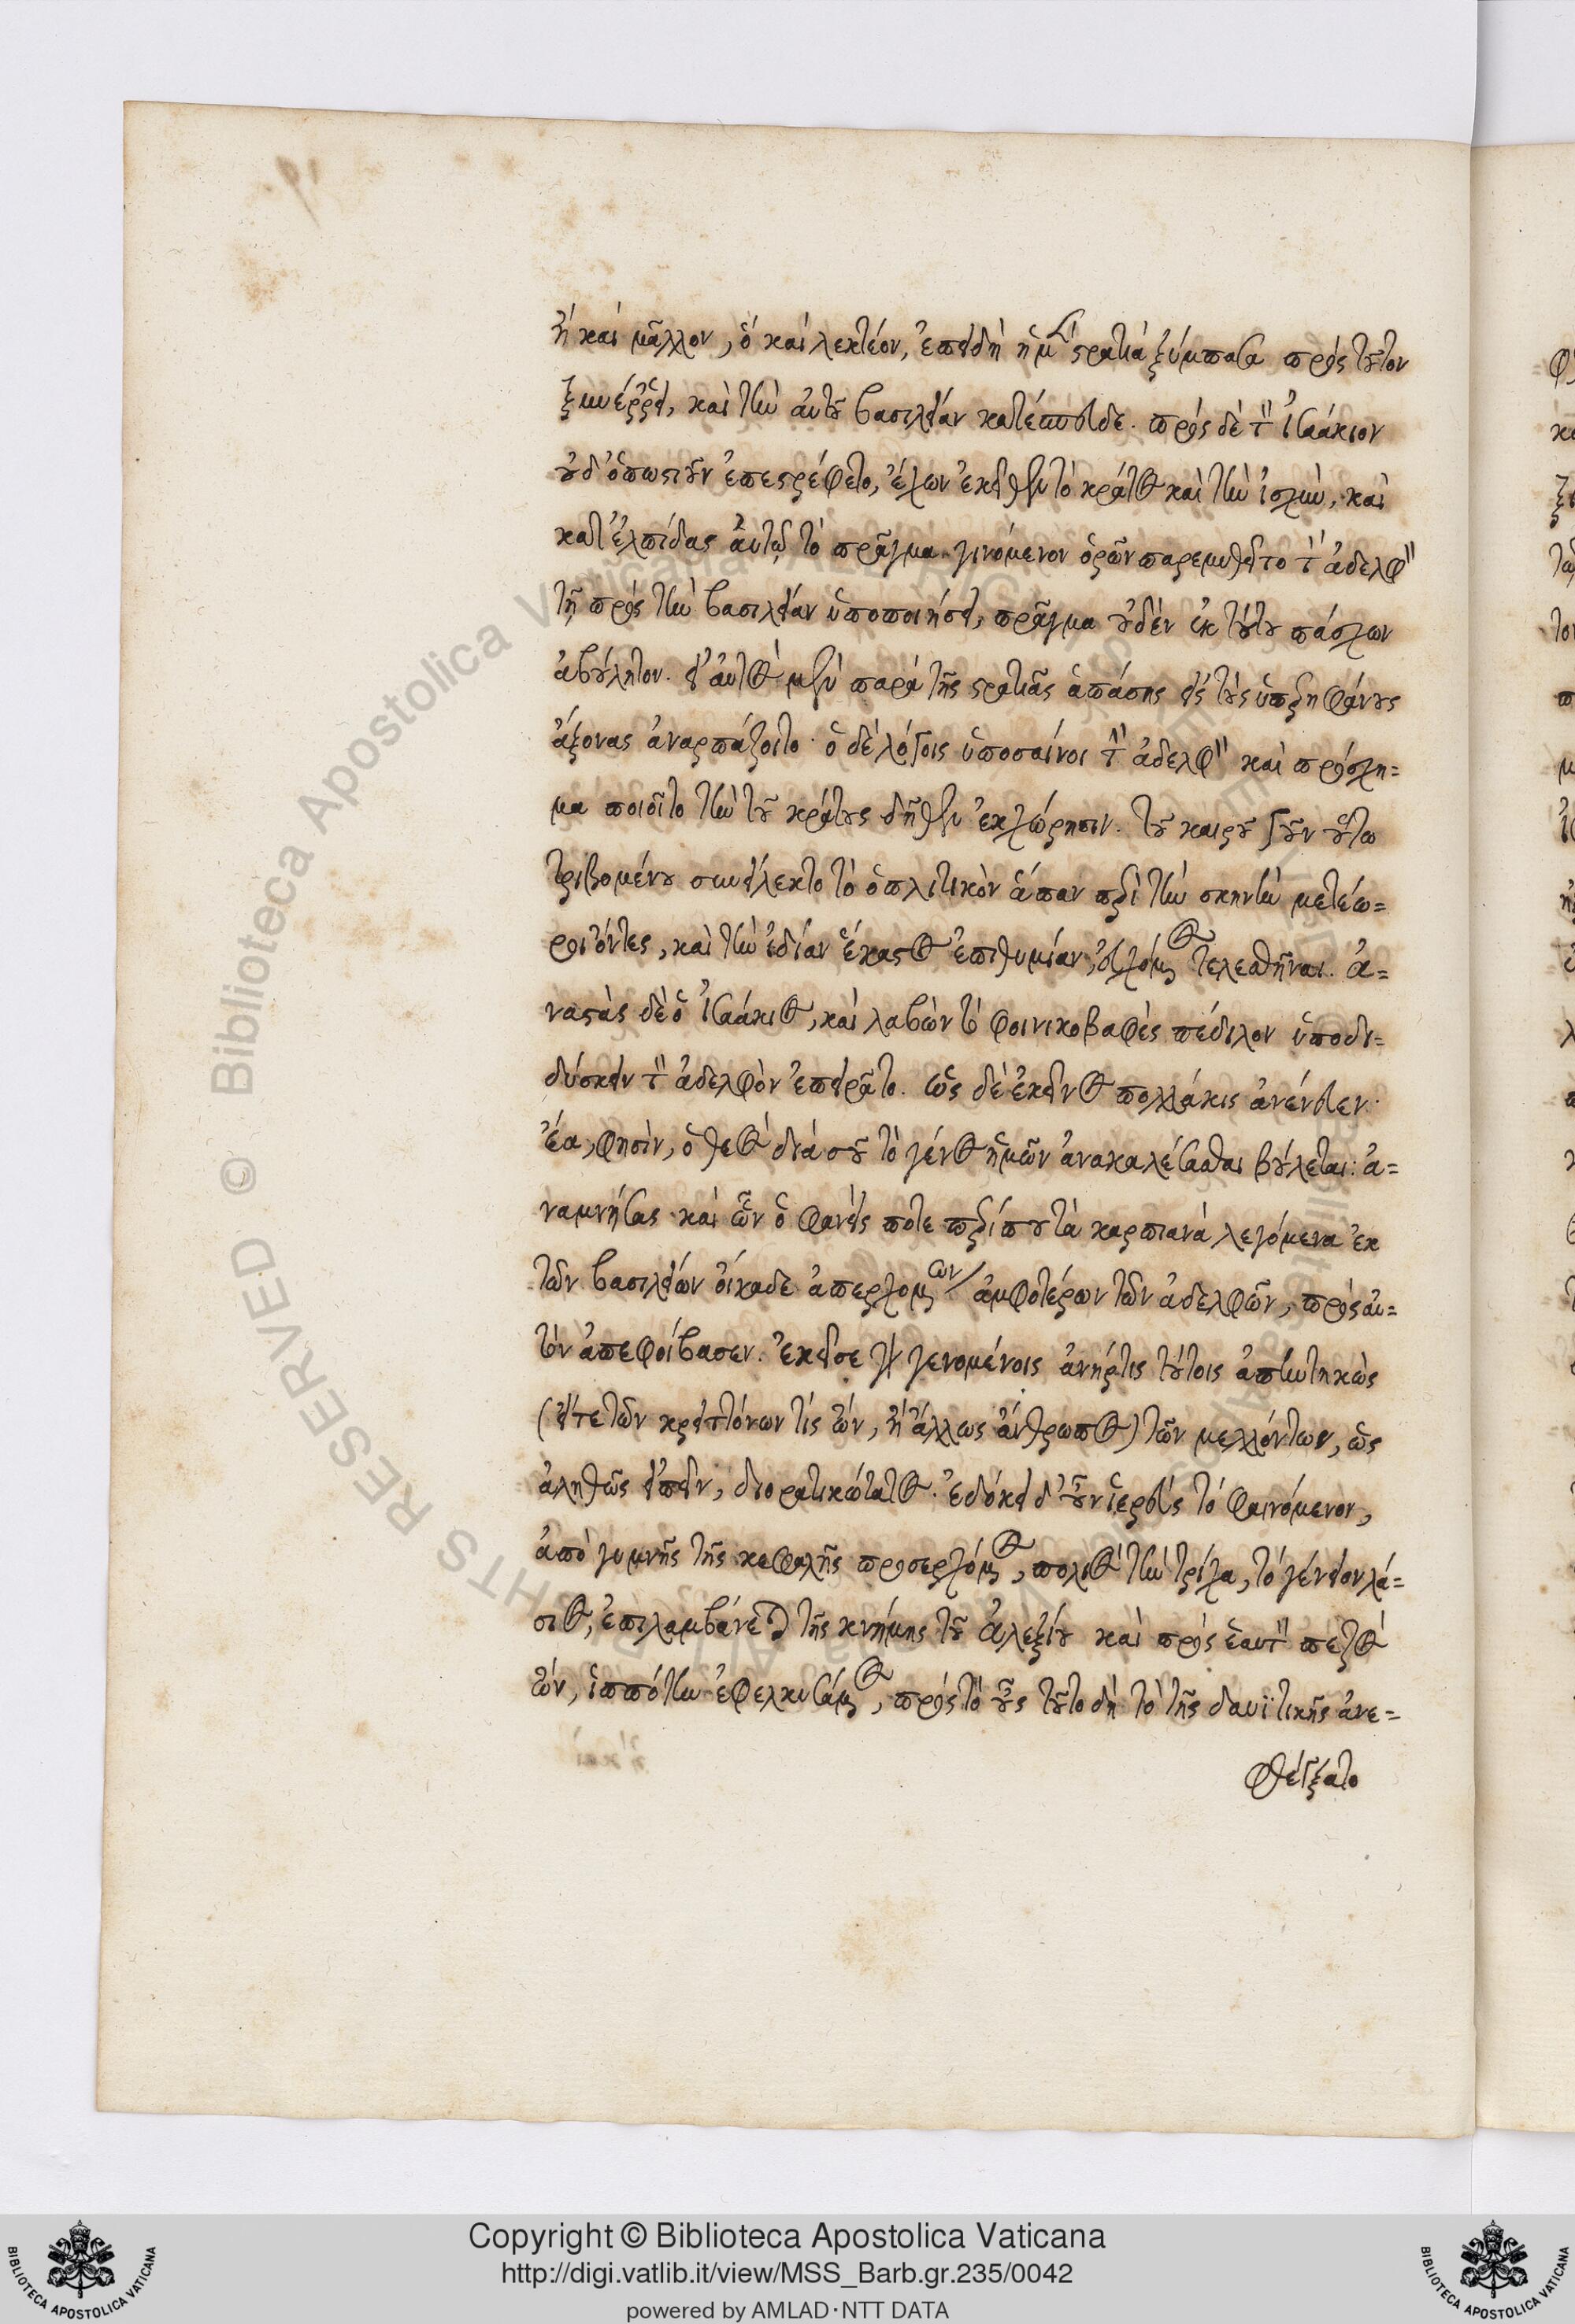 ἢ καὶ μᾶλλον, ὃ καὶ λεκτέον, ἐπειδὴ ἡ μὲν στρατιὰ ξύμπασα πρὸς τοῦτον
ξυνέρρει, καὶ τὴν αὐτοῦ βασιλείαν κατέσπευδε. πρὸς δὲ τὸν Ἰσαάκιον
οὐδ' ὁπωστιοῦν ἐπεστρέφετο, ἔχων ἐκεῖθεν τὸ κράτος καὶ τὴν ἰσχὺν, καὶ
κατ' ἐλπίδας αὐτῷ τὸ πρᾶγμα γινόμενον ὁρῶν παρεμυθεῖτο τὸν ἀδελφὸν
τῇ πρὸς τὴν βασιλείαν ὑποποιήσει, πρᾶγμα οὐδὲν ἐκ τούτου πάσχων
ἀβούλητον. εἰ αὐτὸς μὲν παρὰ τῆς στρατιᾶς ἁπάσης εἰς τοὺς ὑπερηφάνους
ἄξονας ἀναρπάζοιτο· ὁ δὲ λόγοις ὑποσαίνοι τὸν ἀδελφὸν καὶ πρόσχη=
μα ποιοῖτο τὴν τοῦ κράτους δῆθεν ἐκχώρησιν. τοῦ καιροῦ γοῦν οὕτω
τριβομένου συνείλεκτο τὸ ὁπλιτικὸν ἅπαν περὶ τὴν σκηνὴν μετέω=
ροι ὄντες, καὶ τὴν ἰδίαν ἕκαστος ἐπιθυμίαν εὐχόμενος τελεσθῆναι. ἀ=
ναστὰς δὲ ὁ Ἰσαάκιος, καὶ λαβὼν τὸ φοινικοβαφὲς πέδιλον ὑποδι=
δύσκειν τὸν ἀδελφὸν ἐπειρᾶτο. ὡς δὲ ἐκεῖνος πολλάκις ἀνένευεν.
ἔα, φησὶν, ὁ θεὸς διὰ σοῦ τὸ γένος ἡμῶν ἀνακαλέσασθαι βούλεται: ἀ=
ναμνήσας καὶ ὧν ὁ φανεὶς ποτε περί που τὰ καρπιανὰ λεγόμενα ἐκ
τῶν βασιλείων οἴκαδε ἀπερχομένων ἀμφοτέρων τῶν ἀδελφῶν, πρὸς αὐ=
τὸν ἀπεφοίβασεν. ἐκεῖσε γὰρ γενομένοις ἀνήρ τις τούτοις ἀπηντηκὼς
(εἴτε τῶν κρειττόνων τὶς ὤν, ἢ ἄλλως ἄνθρωπος) τῶν μελλόντων, ὡς
ἀληθῶς εἰπεῖν, διορατικώτατος. ἐδόκει δ' οὖν ἱερεὺς τὸ φαινόμενον,
ἀπὸ γυμνῆς τῆς κεφαλῆς προσερχόμενος, πολιὸς τὴν τρίχα, τὸ γένειον λά=
σιος, ἐπιλαμβάνεται τῆς κνήμης τοῦ Ἀλεξίου καὶ πρὸς ἑαυτὸν πεζὸς
ὤν, ἱππότην ἐφελκυσάμενος, πρὸς τὸ οὖς τοῦτο δὴ τὸ τῆς δαυϊτικῆς ἀνε=
φθέγξατο
Copyright © Biblioteca Apostolica Vaticana
http://digi.vatlib.it/view/MSS_Barb.gr.235/0042
powered by AMLAD·NTT DATA